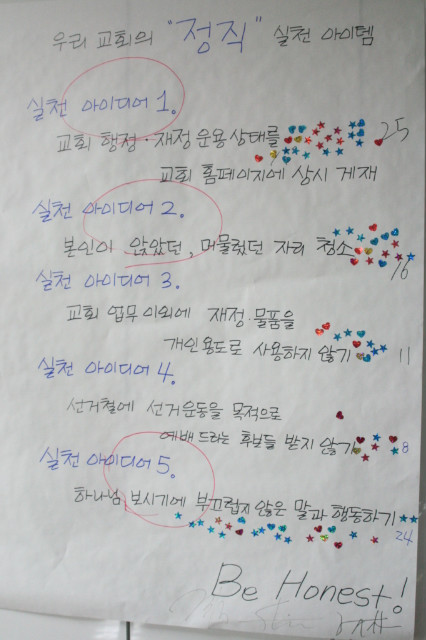 우리 교회의 "정직" 실천 아이템
실천 아이디어 1.
교회 행정·재정 운용상태를 25
교회 홈페이지에 상시 게재
실천 아이디어 2.
본인이 앉았던, 머물렀던 자리 청소
16
실천 아이디어 3.
교회 업무 이외에 재정·물품을
개인용도로 사용하지 않기 11
실천 아이디어 4.
선거철에 선거운동을 목적으로
예배 드리는 후보들 받지 않기 8
실천 아이디어 5.
하나님 보시기에 부끄럽지 않은 말과 행동하기
24
Be Honest!